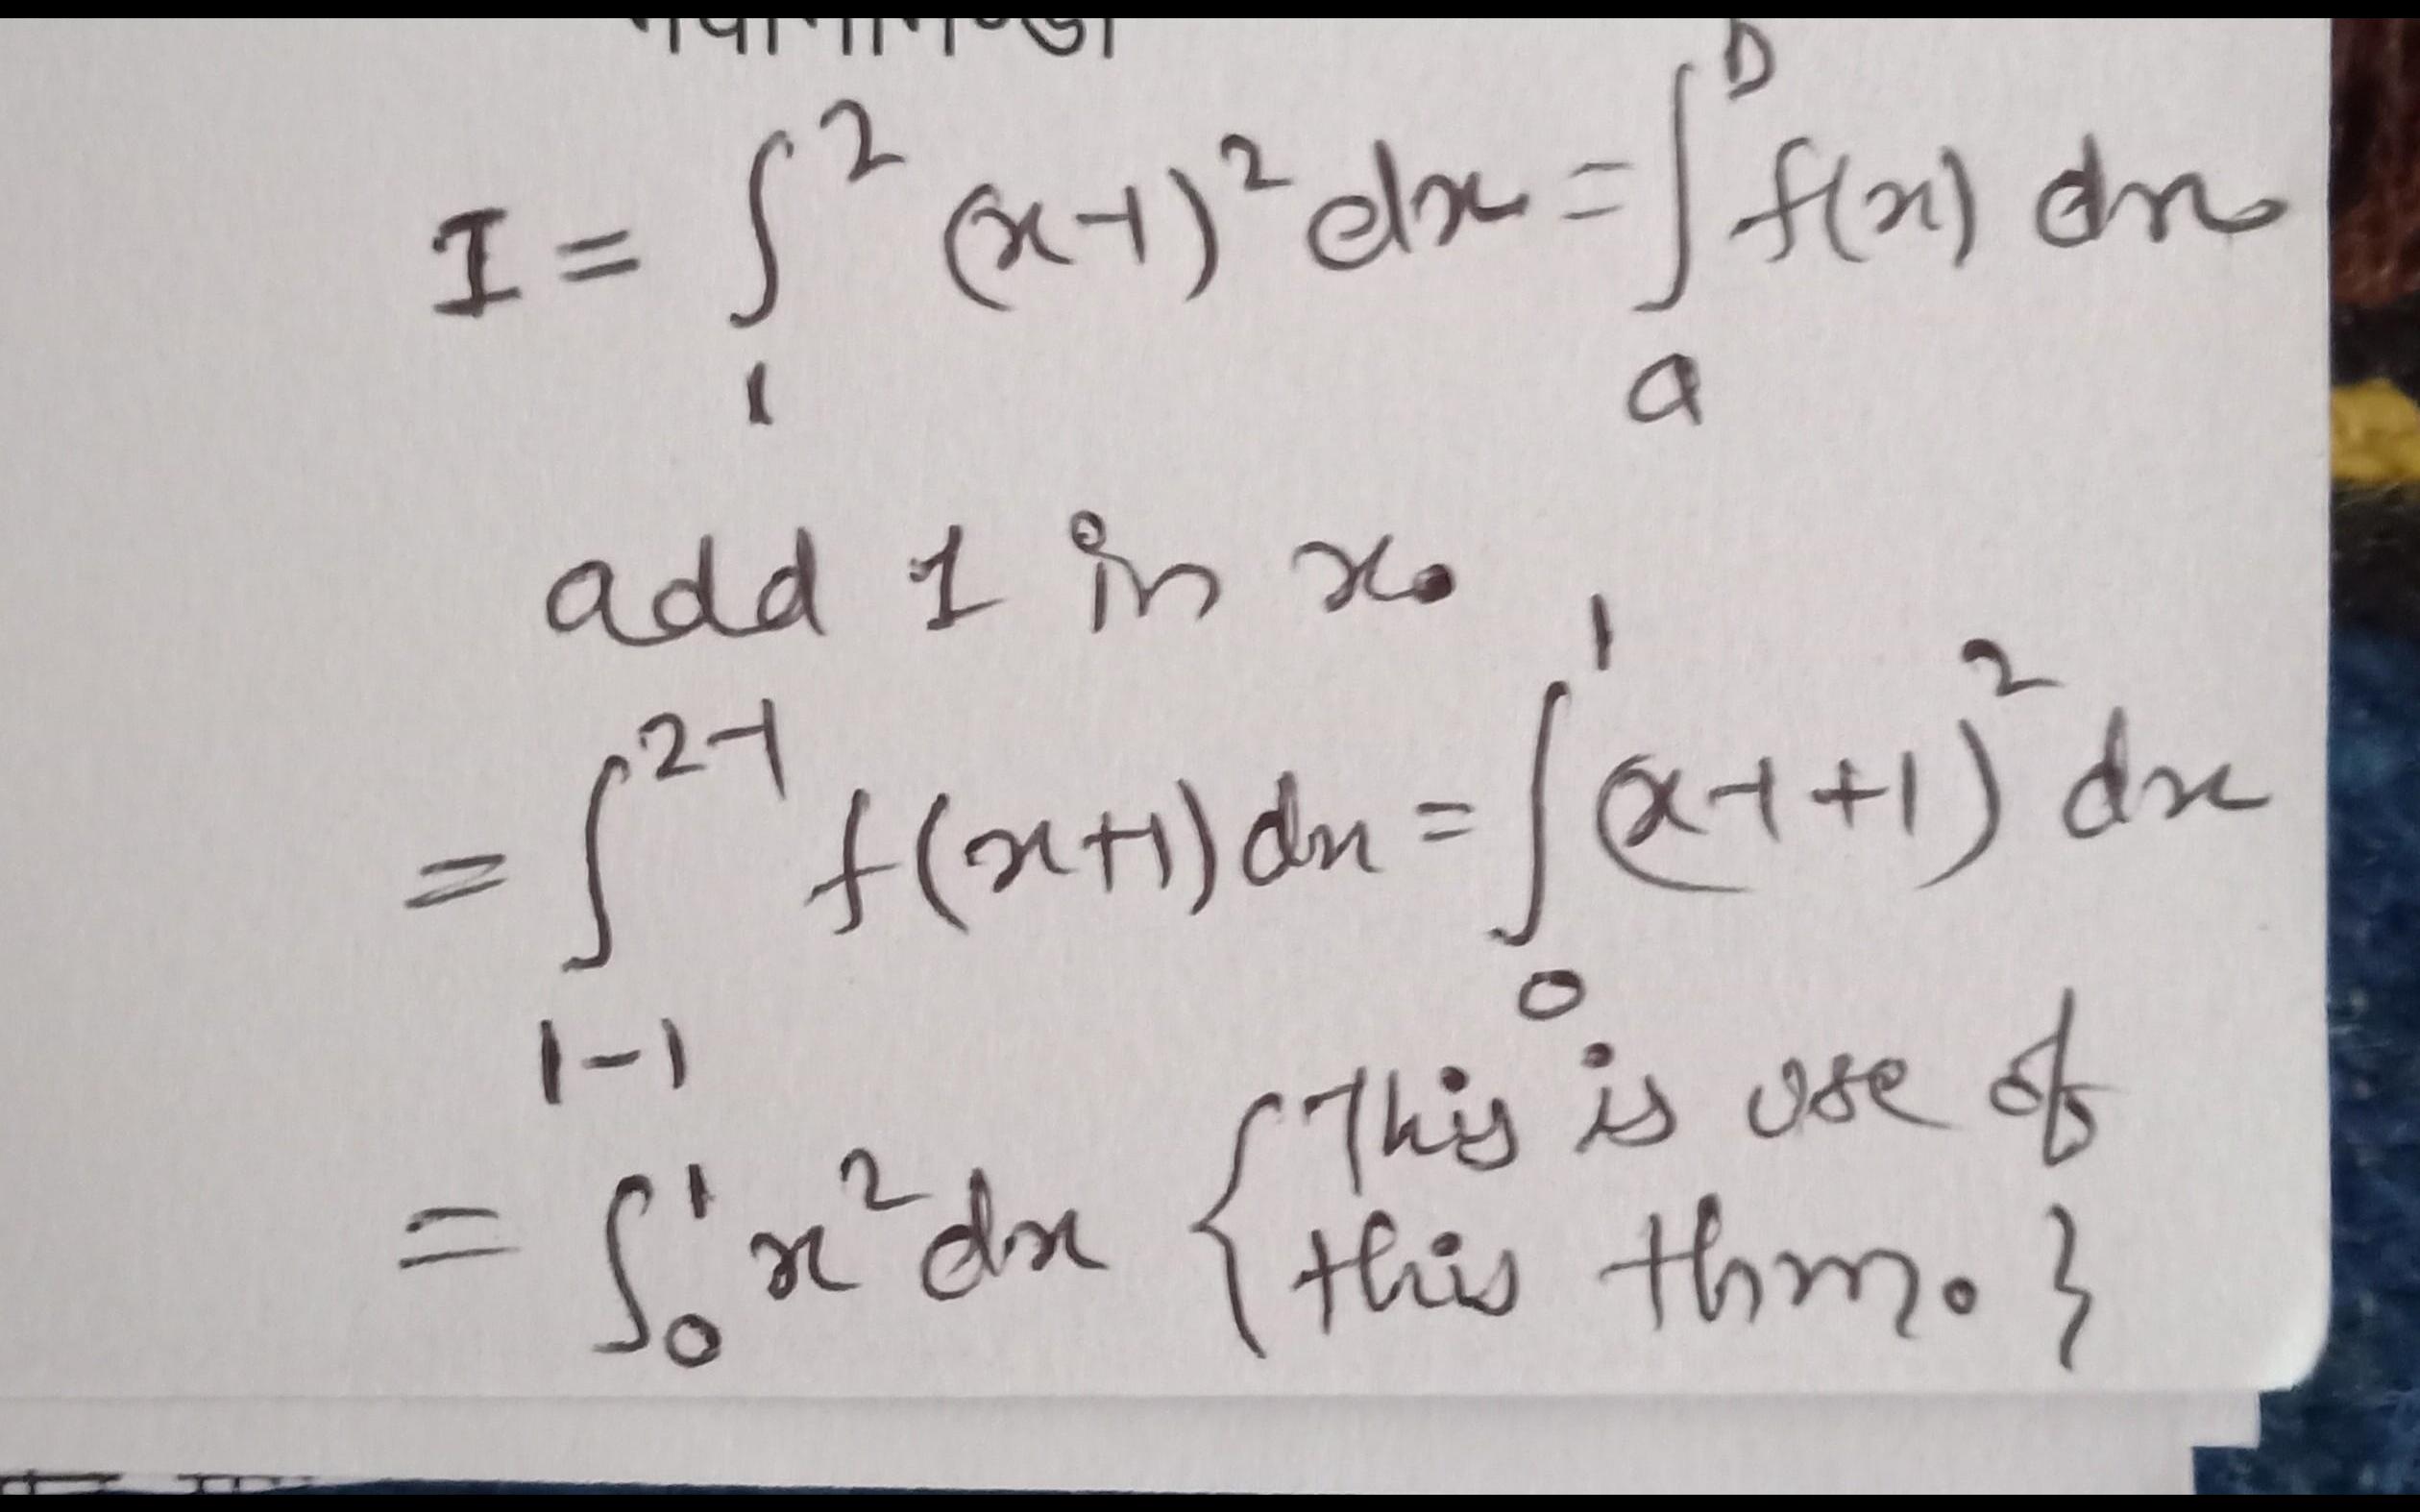 I = ∫₁² (x-1)² dx = ∫ₐᵇ f(x) dx
add 1 in x.
= ∫₁₋₁²⁻¹ f(x+1) dx = ∫₀¹ (x-1+1)² dx
= ∫₀¹ x² dx {This is use of
this thm.}